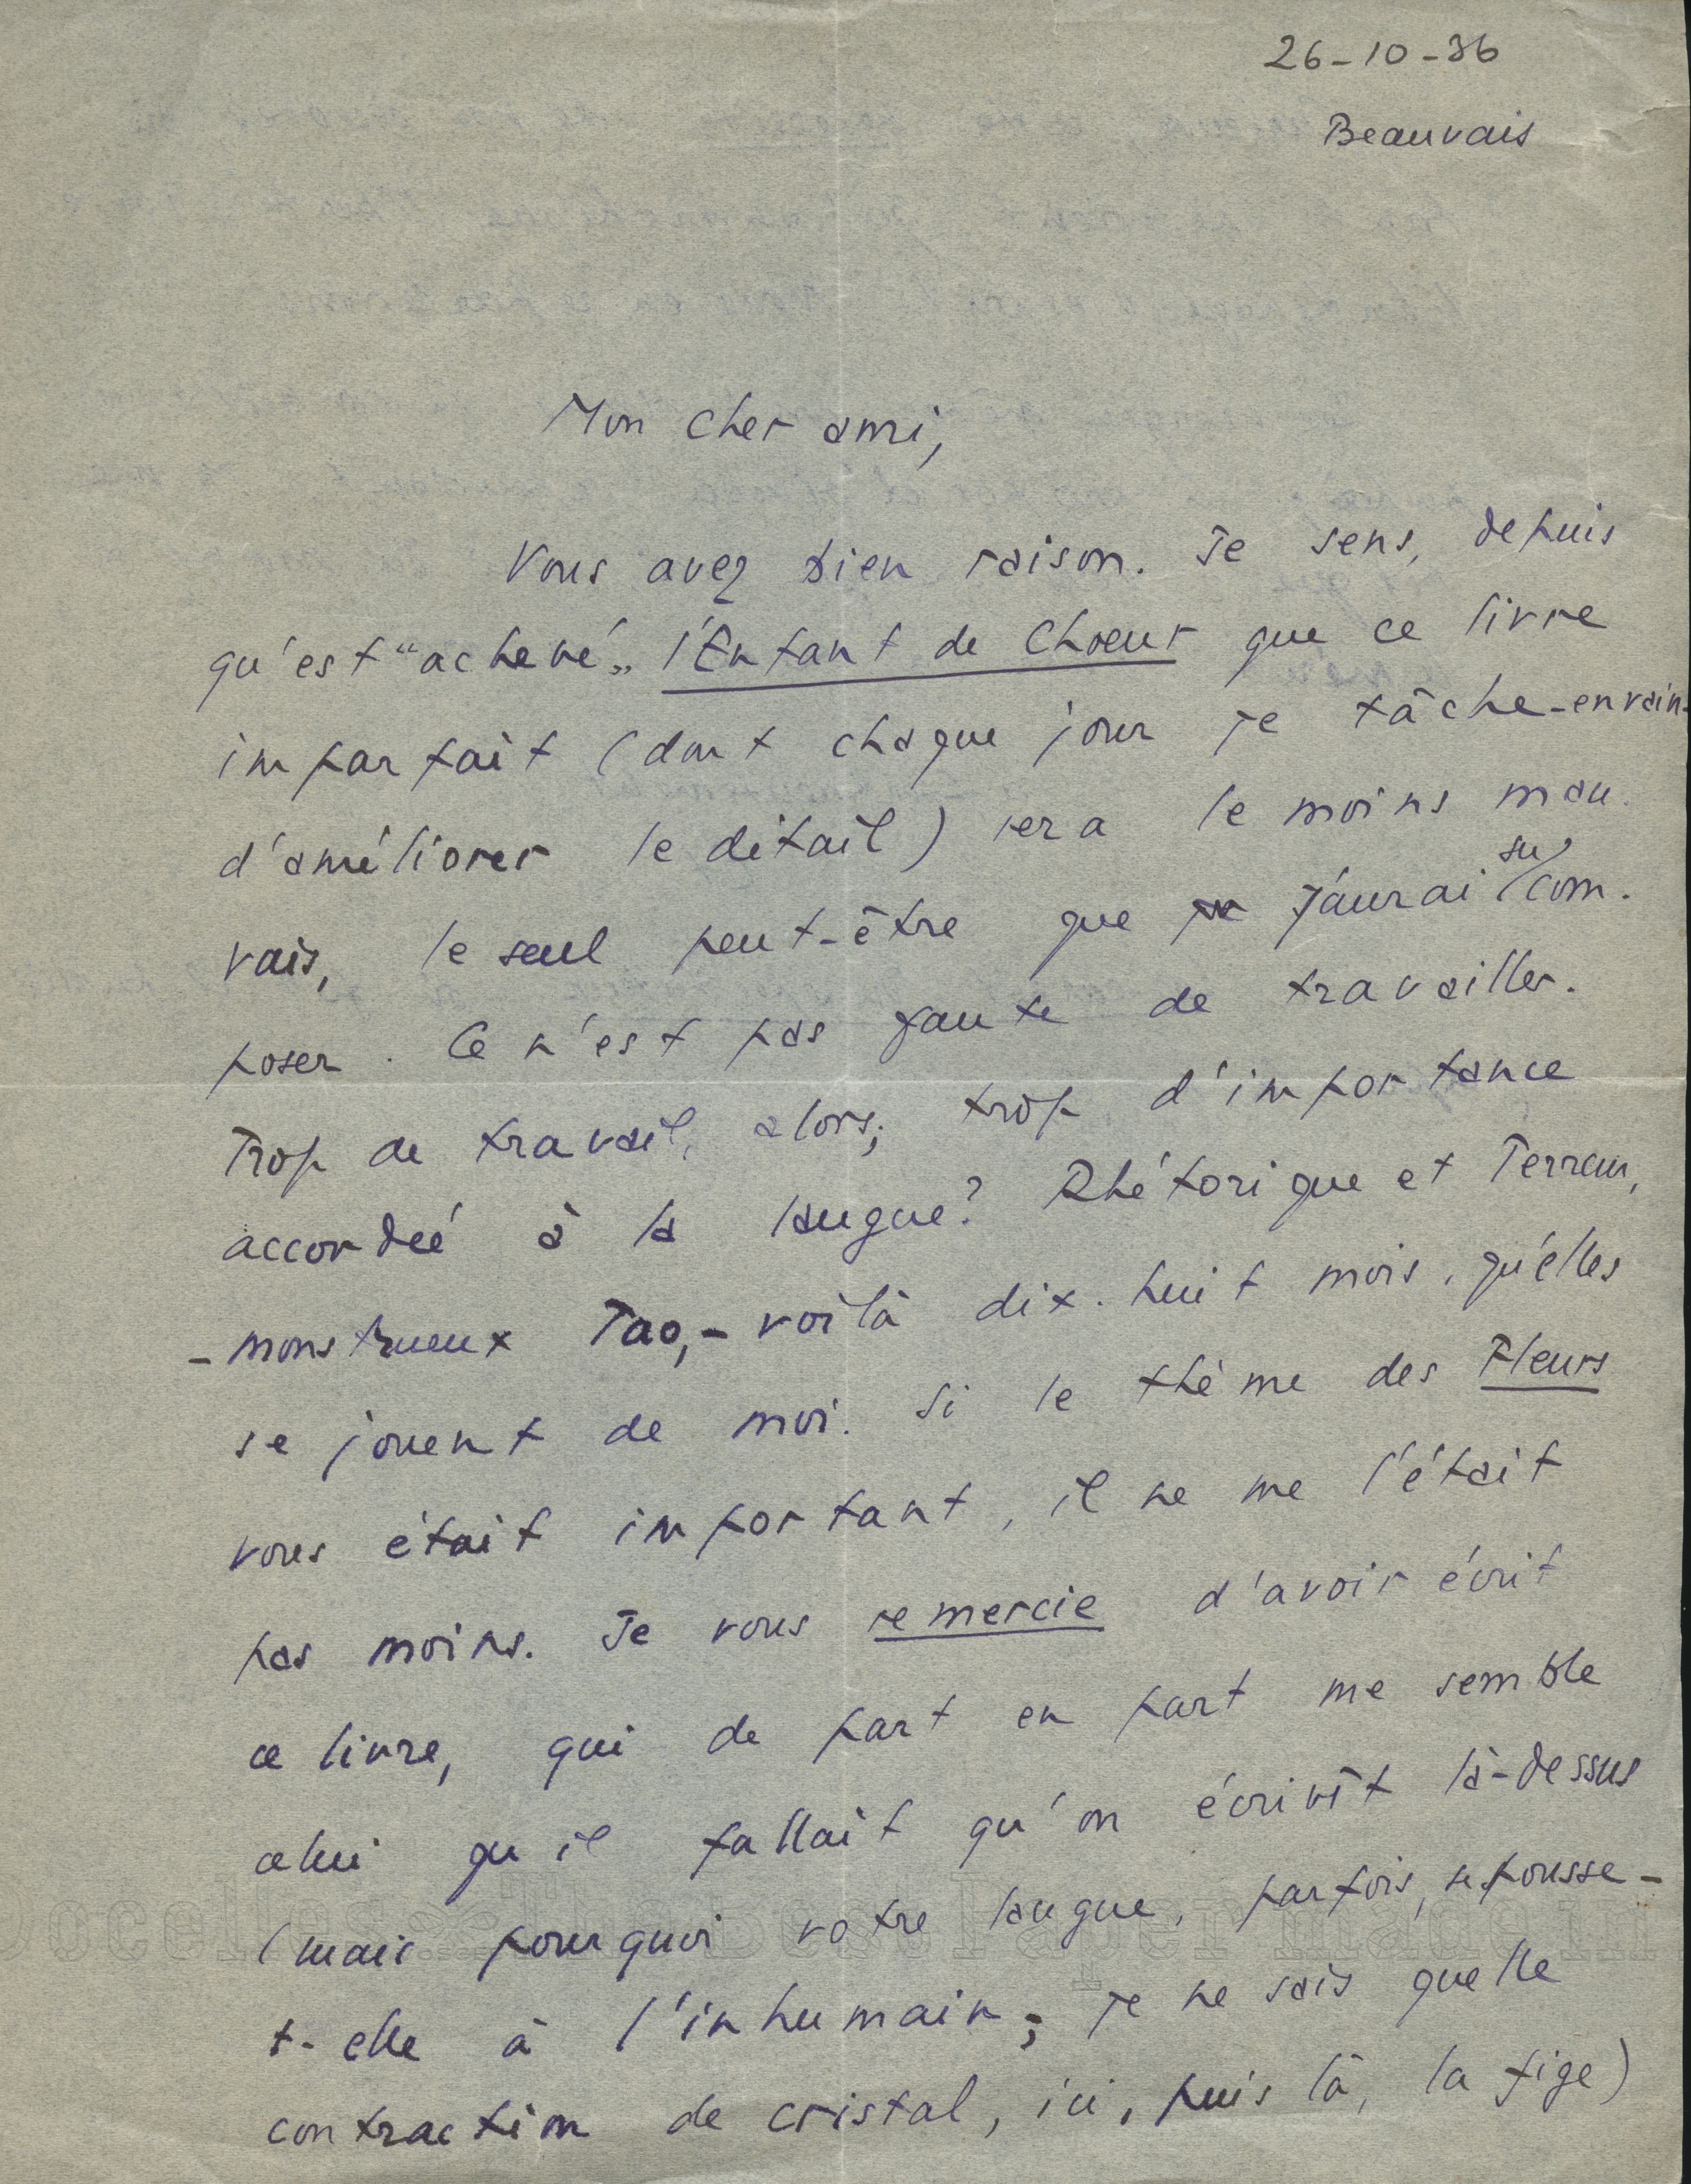 26-10-36
Beauvais
Mon cher ami,
Vous avez bien raison. Je sens, depuis
qu'est "achevé" l'Enfant de Choeur que ce livre
imparfait (dont chaque jour je tâche - en vain -
d'améliorer le détail) sera le moins mau-
vais, le seul peut-être que j'aurai su com-
poser. Ce n'est pas faute de travailler.
Trop de travail, alors; trop d'importance
accordée à la langue? Rhétorique et Terreur,
- monstrueux Tao, - voilà dix-huit mois, qu'elles
se jouent de moi. Si le thème des Fleurs
vous était important, il ne me l'était
pas moins. Je vous remercie d'avoir écrit
ce livre, qui de part en part me semble
celui qu'il fallait qu'on écrivît là-dessus
(mais pourquoi votre langue, parfois, se pousse-
t-elle à l'inhumain; je ne sais quelle
contraction de cristal, ici, puis là, la fige)